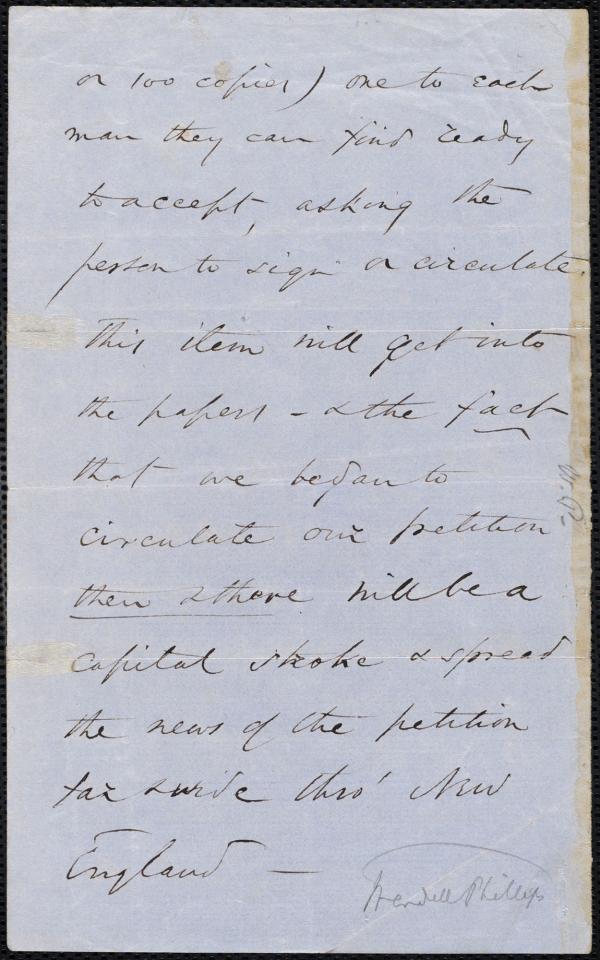 or 100 copies) one to each
man they can find ready
to accept, asking the
person to sign or circulate.
This item will get into
the papers - & the fact
that we began to
circulate our petition
then & there will be a
capital stroke & spread
the news of the petition
far & wide thro' New
England —
Wendell Phillips